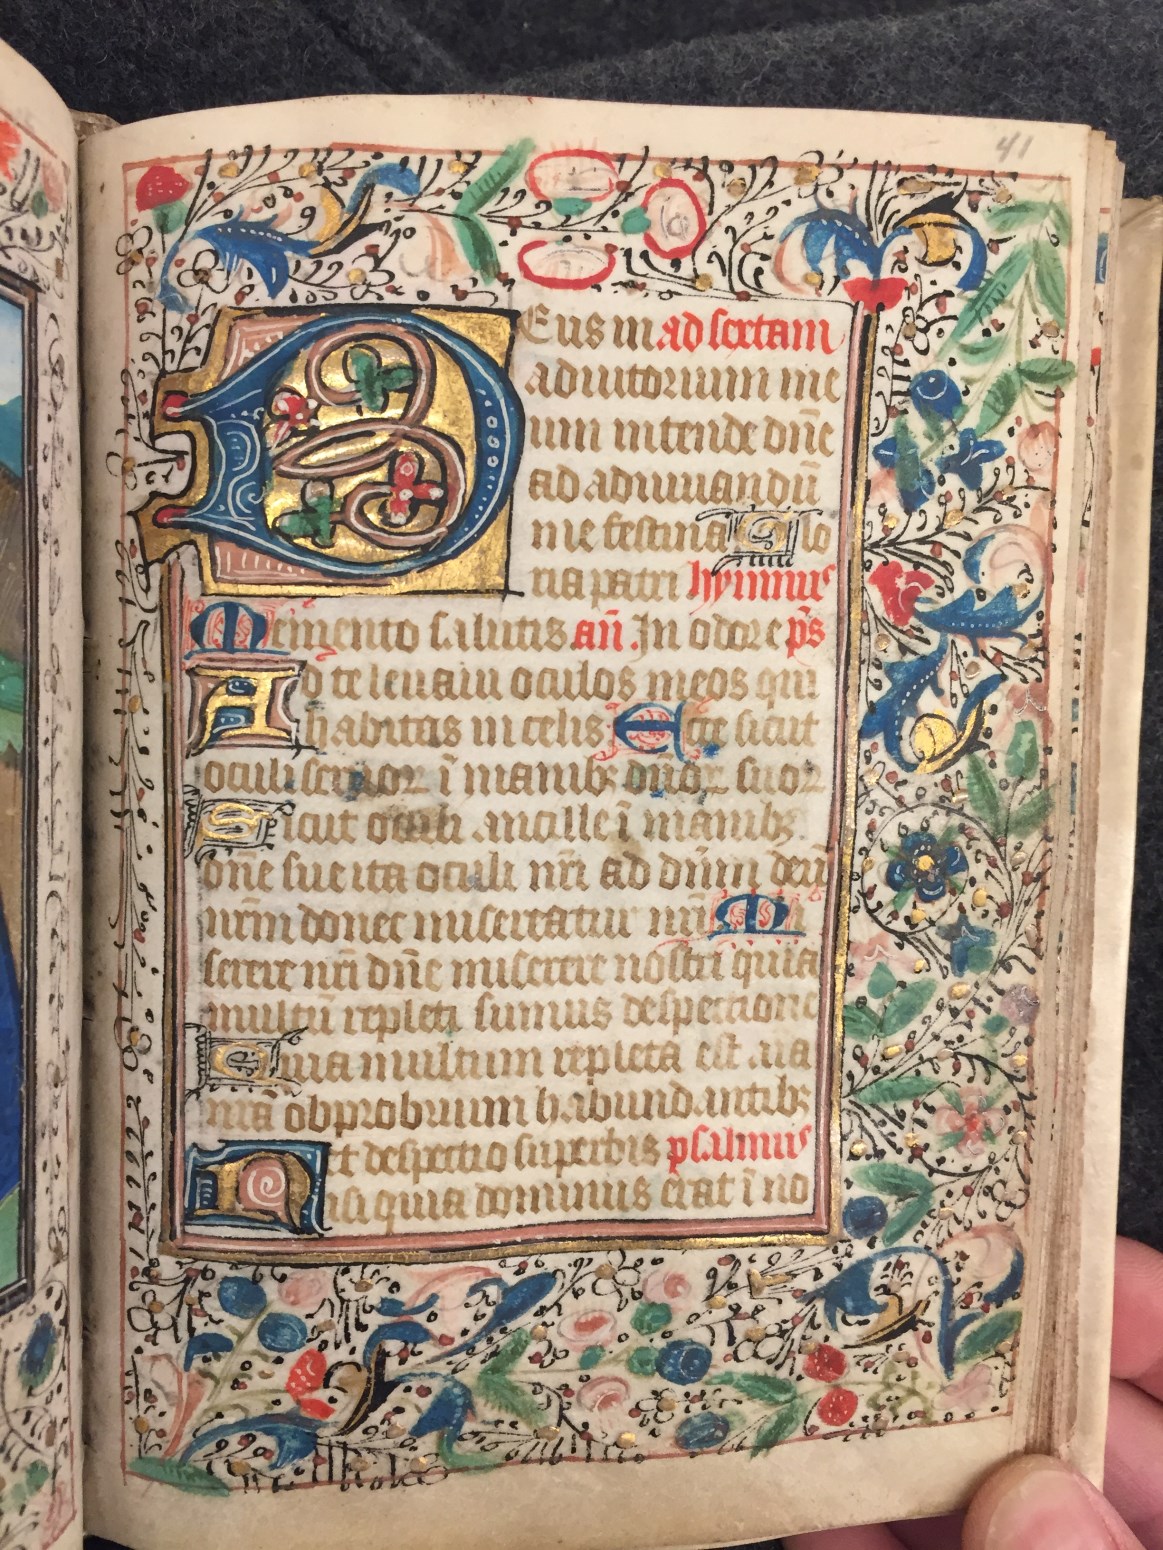 41
DEus in ad sextam
adiutorium me
um intende dñe
ad adiuuandū
me festina Glo
ria patri hymnus
Memento salutis añ. In odore p̄s
Ad te leuaui oculos meos qui
habitas in celis Ecce sicut
oculi seruor ī manibꝫ dñor suor
Sicut oculi ancille ī manibꝫ
dñe sue ita oculi nr̄i ad dñm deū
nr̄m donec misereatur nr̄i Mi
serere nr̄i dñe miserere nostri quia
multū repleti sumus despectione
Quia multum repleta est aīa
nr̄a obprobrium habundantibꝫ
et despectio superbis psalmus
Nisi quia dominus erat ī no